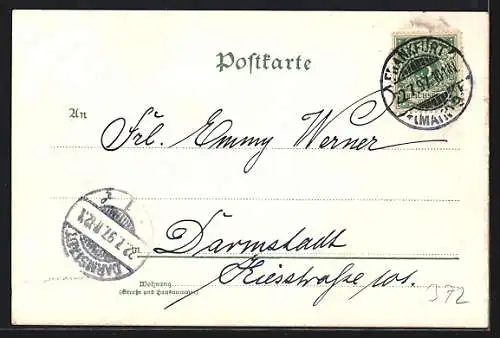 Postkarte
FRANKFURT
(MAIN)
An
Frl. Emmy Werner
DARMSTADT
22.7.97.
in
Darmstadt
Kiesstraße 101.
Wohnung
(Strasse und Hausnummer)